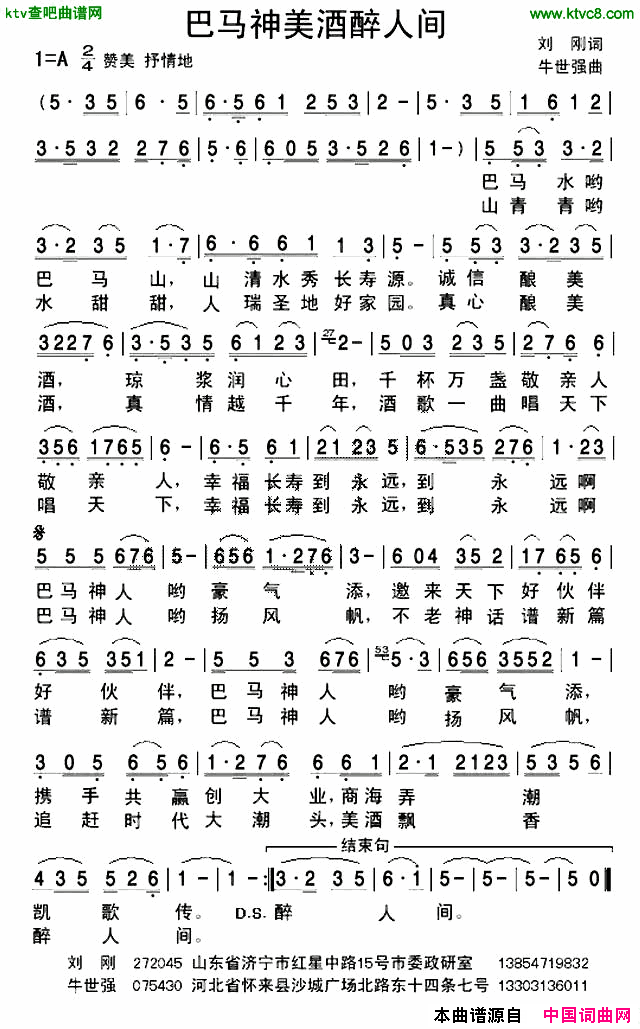 ktv查吧曲谱网
www.ktvc8.com
巴马神美酒醉人间
1=A 2/4 赞美 抒情地
刘 刚词
牛世强曲
(5· 35 | 6 6 | 6·561 253 | 2- | 3·5 5 | 1 6 12 |
3·532 276 | 5·6 | 6053·526 | 1-) | 5 53 3·2 |
巴马 水哟
山青 青哟
3·2 35 1·7 | 6·66 1 253 | 5- | 5 53 3235 |
巴马 山, 山清水秀长寿源。诚信 酿美
水甜 甜, 人瑞圣地好家园。真心 酿美
32276 | 3·535 6123 | 27 2- | 503 235 | 5 2 7656 |
酒, 琼浆润心田,千杯万盏敬亲人
酒, 真情越千年,酒歌一曲唱天下
356 1765 | 6- | 6·5 61 | 21 235 | 6·535 276 | 1·23 |
敬亲人,幸福长寿到永远,到永远啊
唱天下,幸福长寿到永远,到永远啊
5 5 5 676 | 5- | 656 1·276 | 3- | 604 352 | 17 65 |
巴马神人哟豪气添,邀来天下好伙伴
巴马神人哟扬风帆,不老神话谱新篇
635 351 | 2- | 5 5 3 676 | 53 5·3 | 656 3552 | 1- |
好伙伴,巴马神人哟豪气添,
谱新篇,巴马神人哟扬风帆,
3 05 6 56 | 1·276 56 | 6 6 1 | 2·1 2123 |
携手共赢创大业,商海弄潮
追赶时代大潮头,美酒飘香
结束句
435 526 | 1- | 1- :‖ 3·2 35 | 6·1 | 5- | 5- | 50 ‖
凯歌传。D.S.醉人间。
醉人间。
刘 刚 272045 山东省济宁市红星中路15号市委政研室 13854719832
牛世强 075430 河北省怀来县沙城广场北路东十四条七号 13303136011
本曲谱源自 中国词曲网